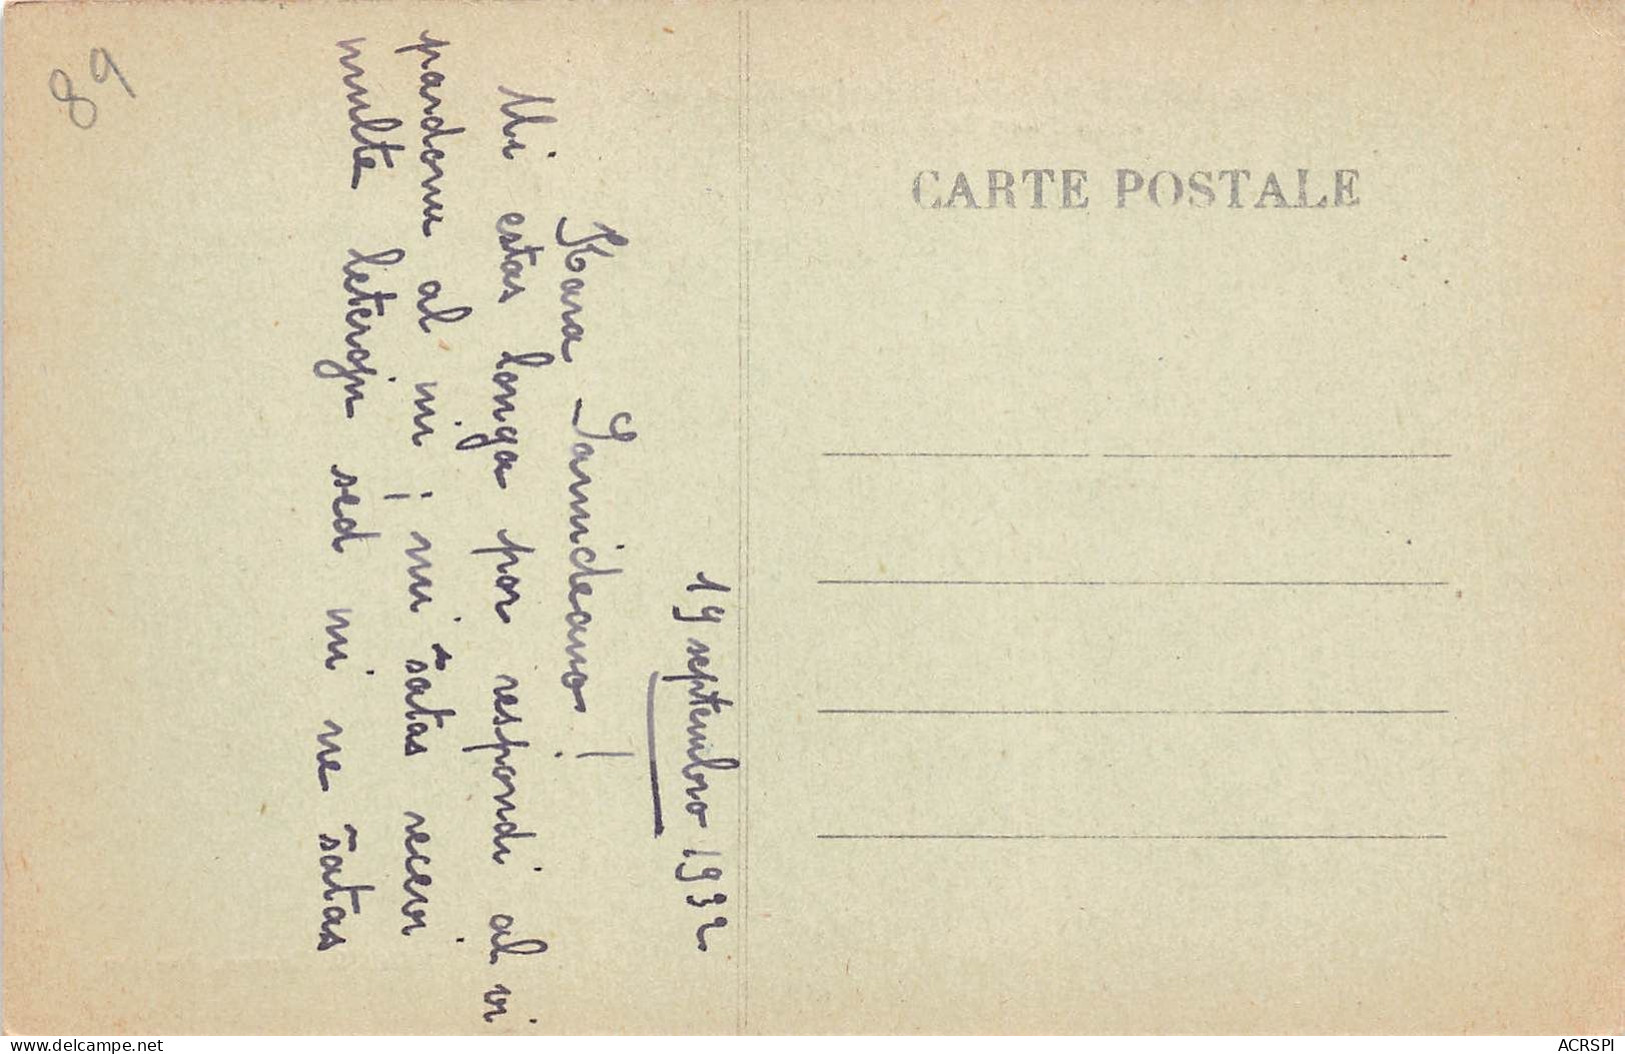 89
CARTE POSTALE
19 septembro 1932
Kara Samideano!
Mi estas longa por respondi al vi
pardonu al mi; mi ŝatas recevi
multe leterojn sed mi ne ŝatas
delcampe.net
ACRSPI